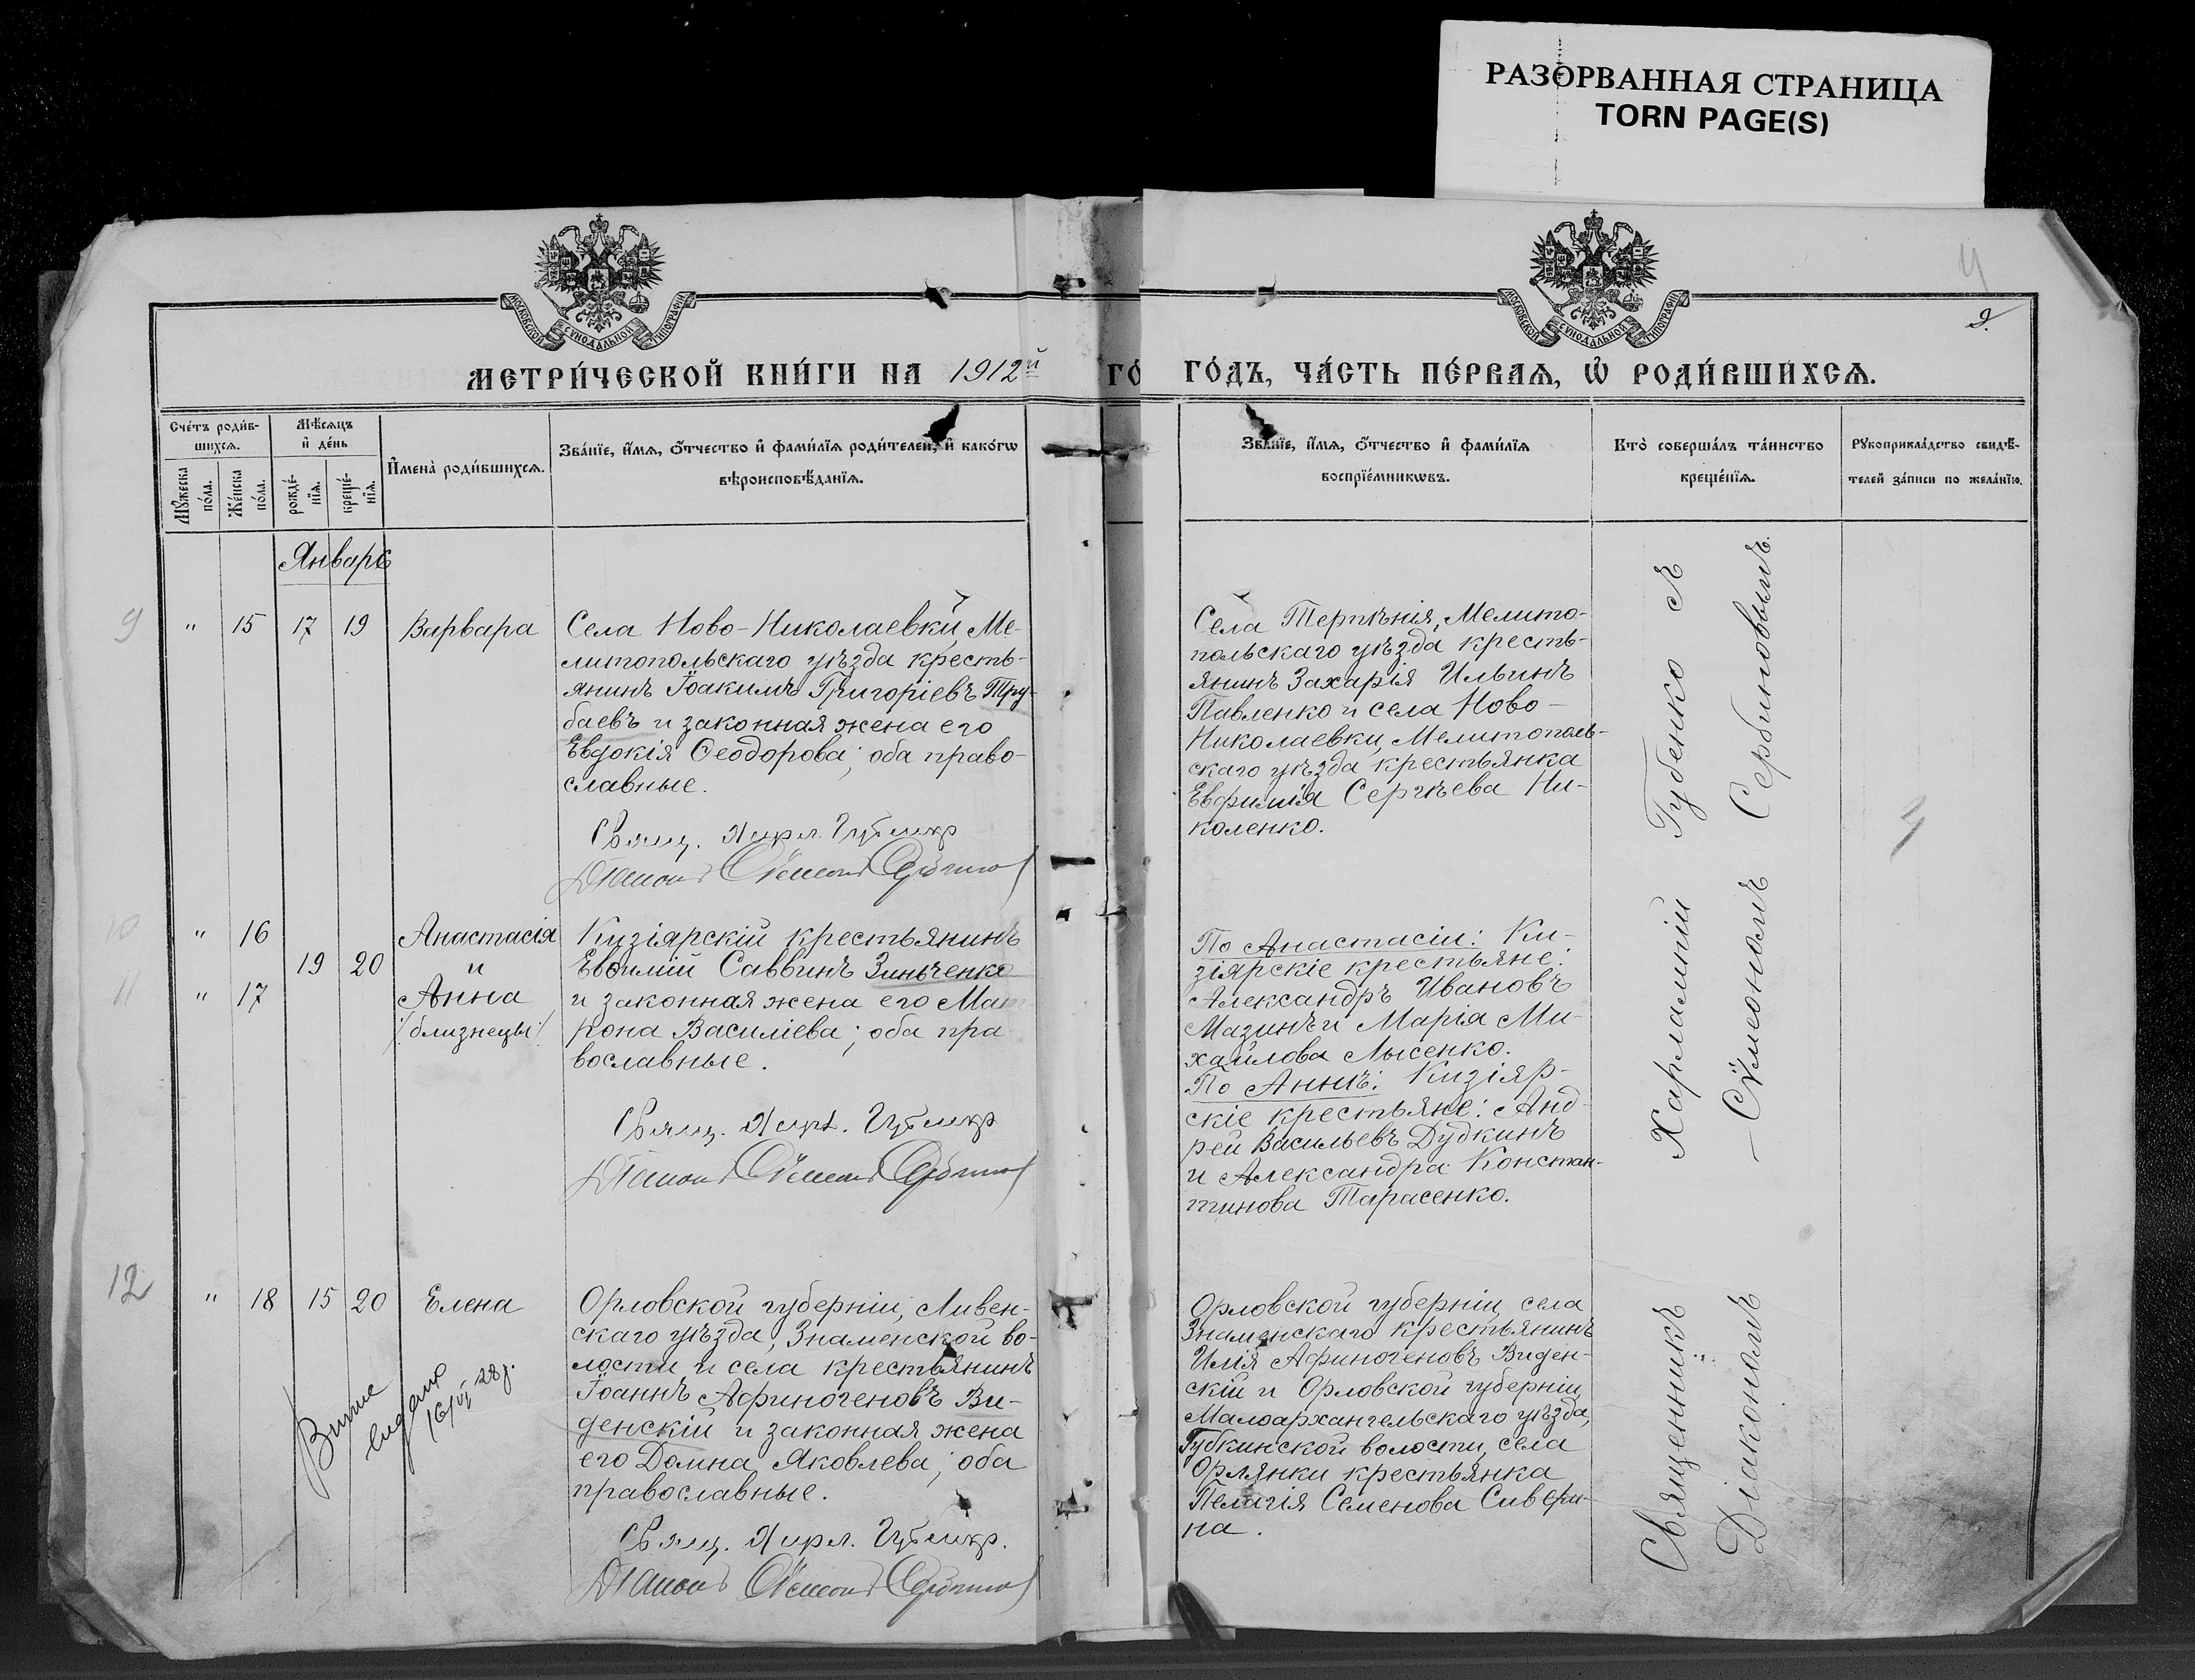 РАЗОРВАННАЯ СТРАНИЦА
TORN PAGE(S)
МОСКОВСКОЙ СѴНОДАЛЬНОЙ ТИПОГРАФІИ
МОСКОВСКОЙ СѴНОДАЛЬНОЙ ТИПОГРАФІИ
4
2.
МЕТРИ́ЧЕСКОЙ КНИ́ГИ НА 1912й
ГО́ДЪ, ЧА́СТЬ ПЕ́РВАЯ, Ѡ РОДИ́ВШИХСЯ.
Сче́тъ роди́в-
шихся.
Мѣ́сяцъ
и де́нь
Мꙋ́жеска
по́ла.
Же́нска
по́ла.
рожде́-
нїя.
креще́-
нїя.
Имена̀ роди́вшихся.
Зва́нїе, и́мя, о́тчество и фами́лїя роди́телей, и како́гѡ
вѣроисповѣ́данїя.
Зва́нїе, и́мя, о́тчество и фами́лїя
воспрїе́мникѡвъ.
Кто̀ соверша́лъ та́инство
креще́нїя.
Рꙋкоприкла́дство свидѣ́-
телей за́писи по жела́нїю.
Январь
9 " 15 17 19 Варвара
Села Ново-Николаевки, Ме-
литопольскаго уѣзда кресть-
янинъ Іоакимъ Григоріевъ Тру-
баевъ и законная жена его
Евдокія Ѳеодорова; оба право-
славные.
Свящ. Харл. Губенко
Діаконъ Сѵмеонъ Сербинов
Села Терпѣнія, Мелито-
польскаго уѣзда кресть-
янинъ Захарія Ильинъ
Павленко и села Ново-
Николаевки, Мелитополь-
скаго уѣзда крестьянка
Евфимія Сергѣева Ни-
коленко.
10 " 16 Анастасія
19 20 и
11 " 17 Анна
/близнецы/.
Кизіярскій крестьянинъ
Евѳимій Саввинъ Зинченко
и законная жена его Мат
рона Василіева; оба пра
вославные.
Свящ. Харл. Губенко
Діаконъ Сѵмеонъ Сербинов
По Анастасіи: Ки-
зіярскіе крестьяне:
Александръ Ивановъ
Мазинъ и Марія Ми-
хайлова Лысенко.
По Аннѣ: Кизіяр-
скіе крестьяне: Анд-
рей Васильевъ Дудкинъ
и Александра Констан-
тинова Тарасенко.
12 " 18 15 20 Елена
Орловской губерніи, Ливен-
скаго уѣзда, Знаменской во-
лости и села крестьянинъ
Іоаннъ Афиногеновъ Ви-
денскій и законная жена
его Домна Яковлева; оба
православные.
Свящ. Харл. Губенко.
Діаконъ Сѵмеонъ Сербинов
Орловской губерніи, села
Знаменскаго крестьянинъ
Илія Афиногеновъ Виден-
скій и Орловской губерніи,
Малоархангельскаго уѣзда,
Губкинской волости, села
Орлянки крестьянка
Пелагія Семенова Сивери-
на.
Священникъ Харлампій Губенко съ
Діакономъ Сѵмеономъ Сербиновымъ.